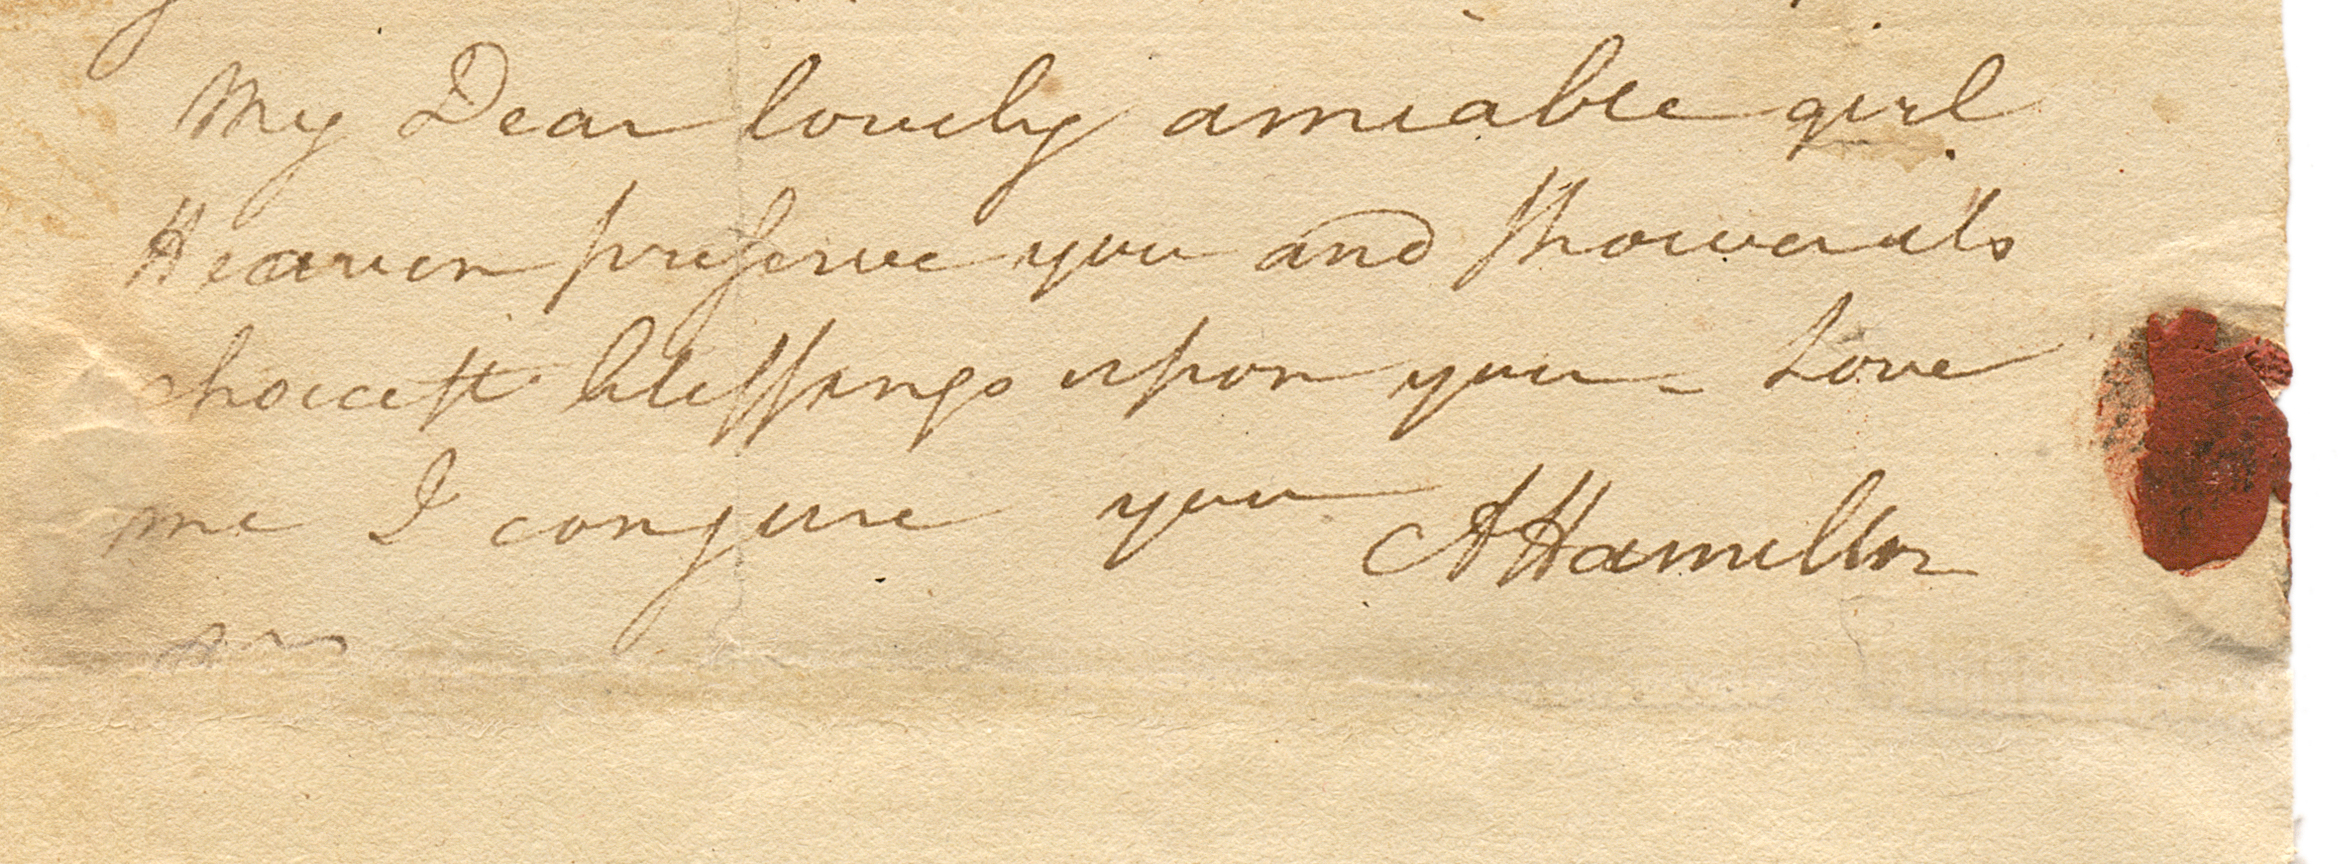 My Dear lovely amiable girl
Heaven preserve you and shower its
choicest blessings upon you – Love
me I conjure you
AHamilton